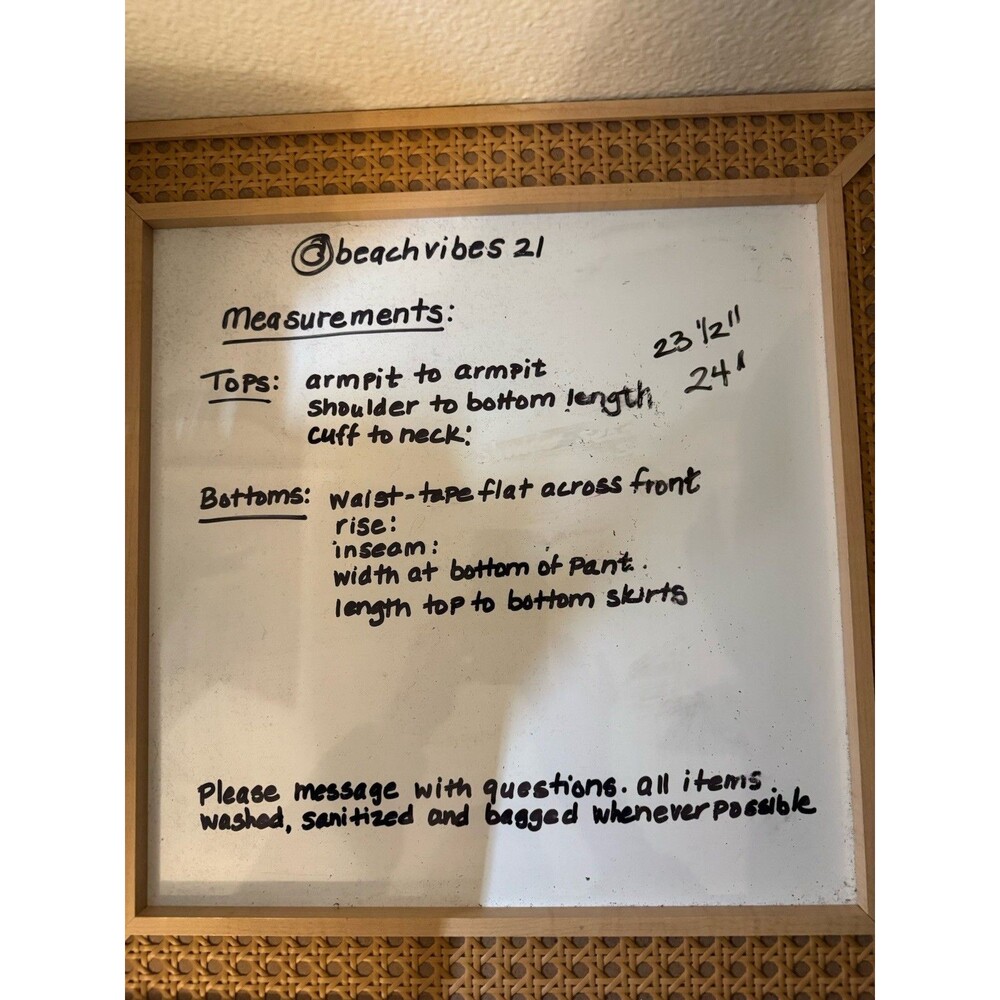 @beachvibes 21
Measurements:
Tops: armpit to armpit 23 1/2"
shoulder to bottom length 24"
cuff to neck:
Bottoms: waist-tape flat across front
rise:
inseam:
width at bottom of pant.
length top to bottom skirts
Please message with questions. all items
washed, sanitized and bagged whenever possible